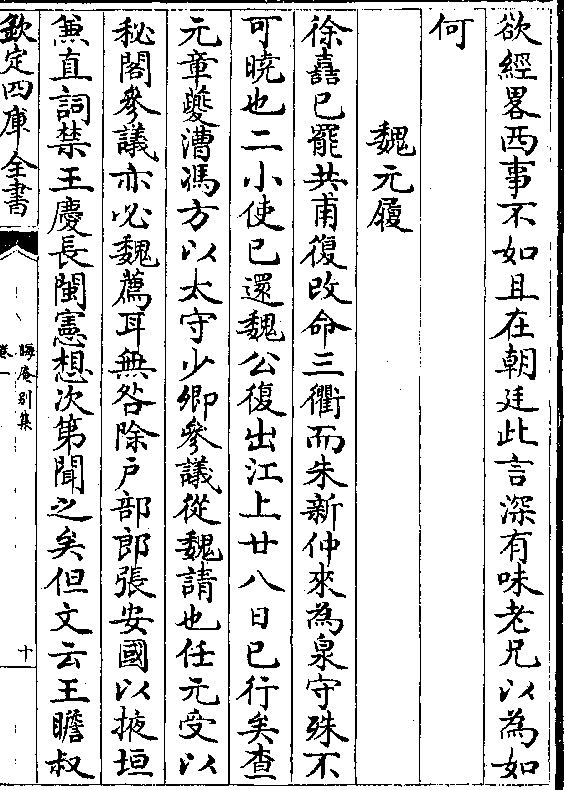 欲經畧西事不如且在朝廷此言深有味老兄以為如
何
魏元履
徐嚞已罷共甫復改命三衢而朱新仲來為泉守殊不
可曉也二小使已還魏公復出江上廿八日已行矣查
元章夔漕馮方以太守少卿參議從魏請也任元受以
秘閣參議亦必魏薦耳無咎除户部郎張安國以掖垣
兼直詞禁王慶長閩憲想次第聞之矣但文云王瞻叔
欽定四庫全書
晦庵别集
卷一
十